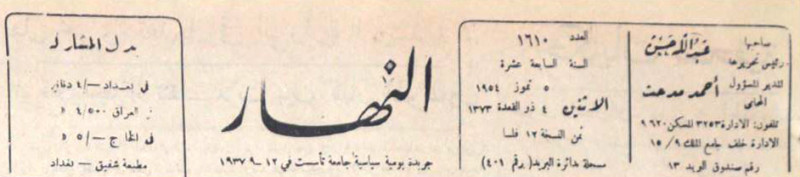 صاحبها عبدالله حسن
رئيس تحريرها
المدير المسؤول أحمد مدحت
المحامي
تلفون: الادارة ٣٢٥٣ المسكن ٩٦٢٠
الادارة خلف جامع الملك ١٥/٩
رقم صندوق البريد ١٣
العدد ١٦١٠
السنة السابعة عشرة
٥ تموز ١٩٥٤
الاثنين ٤ ذو القعدة ١٣٧٣
ثمن النسخة ١٢ فلسا
مسجلة بدائرة البريد (رقم ٤٠١)
النهار
جريدة يومية سياسية جامعة تأسست في ١٢-٩-١٩٣٧
بدل المشاركة
في بغداد —/٤ دنانير
العراق ٤/٥٠٠
في الخارج —/٥
مطبعة شفيق — بغداد